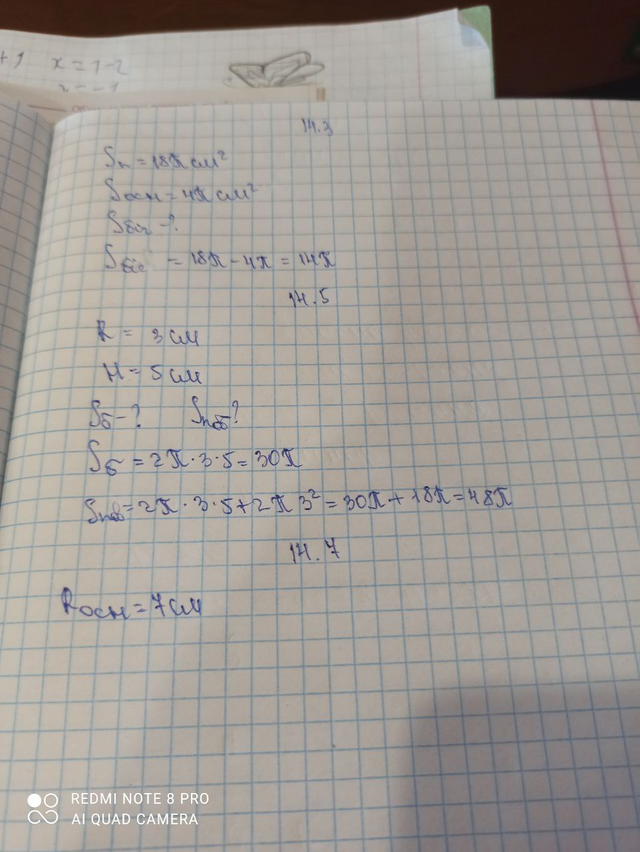 +1 x = 1 - 2
14.3
Sп = 18π см²
Sосн = 4π см²
Sбіч - ?
Sбіс = 18π - 4π = 14π
14.5
R = 3 см
H = 5 см
Sб - ? Sпов ?
Sб = 2π · 3 · 5 = 30π
Sпов = 2π · 3 · 5 + 2π 3² = 30π + 18π = 48π
14.7
Rосн = 7 см
REDMI NOTE 8 PRO
AI QUAD CAMERA